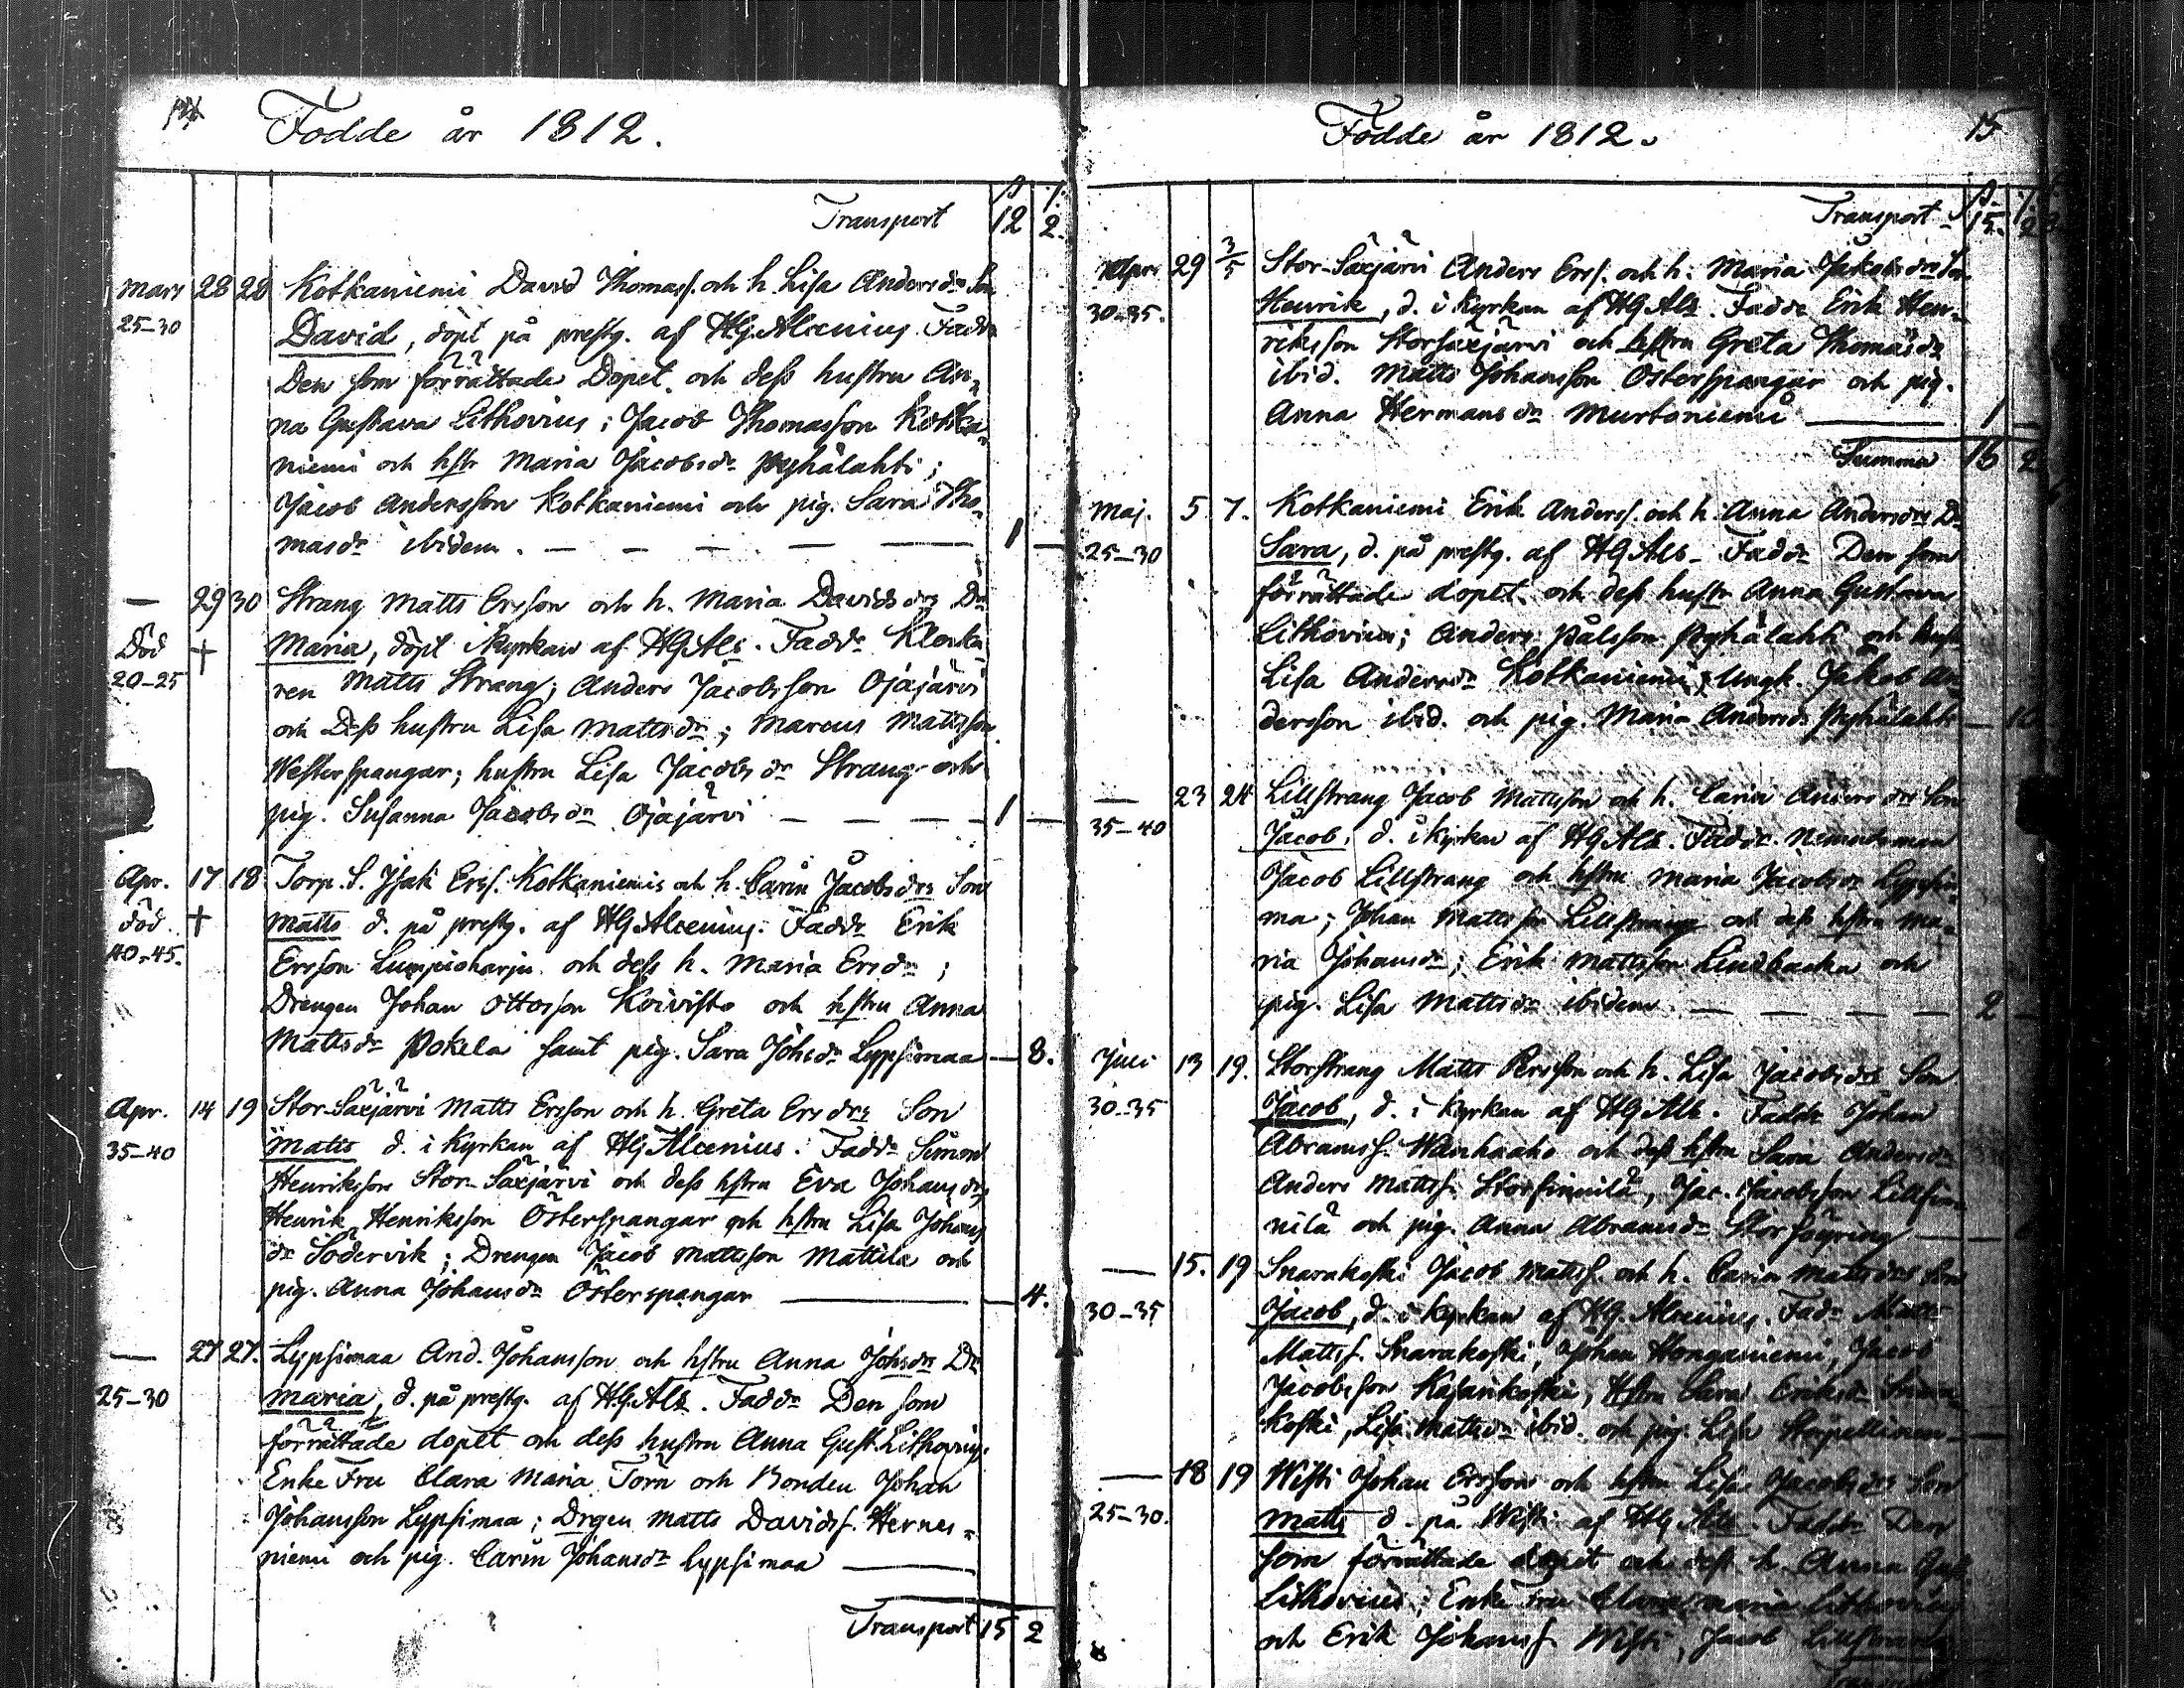 14
Födde år 1812.
ß /.
Transport 12 2.
Mars 28 28 Kotkaniemi David Thomass. och h. Lisa Andersdrs Son
25-30 David, döpt på prestg. af HG.Alcenius. Faddr
Den som förrättade Dopet och dess hustru An-
na Gustava Lithovius; Jacob Thomasson Kotka-
niemi och hstr Maria Jacobsdr Pyhälahti;
Jacob Andersson Kotkaniemi och pig. Sara Tho-
masdr ibidem. — — — — — 1 —
— 29 30 Strang Matts Ersson och h. Maria Davidsdrs Dr
Död + Maria, döpt i kyrkan af HGAls. Faddr Klocka-
20-25 ren Matts Strang; Anders Jacobsson Ojajärvi
och Dess hustru Lisa Mattsdr; Marcus Mattsson
Westerspangar; hustru Lisa Jacobsdr Strang och
pig. Susanna Jacobsdr Ojajärvi — — — — 1 —
Apr. 17 18 Torp. S. Isak Erss. Kotkaniemis och h. Carin Jacobsdrs Son
död. + Matts d. på prestg. af HGAlcenius. Faddr Erik
40-45. Ersson Lumpioharju och dess h. Maria Ersdr;
Drengen Johan Ottosson Koivisto och hstru Anna
Mattsdr Pokela samt pig. Sara Johsdr Lypsimaa — 8.
Apr. 14 19 Stor-Säxjärvi Matts Ersson och h. Greta Ersdrs Son
35-40 Matts d. i Kyrkan af HGAlcenius. Faddr Simon
Henriksson Stor-Säxjärvi och dess hstru Eva Johansdr,
Henrik Henriksson Österspangar och hstru Lisa Johans
dr Södervik; Drengen Jacob Mattsson Mattila och
pig. Anna Johansdr Österspangar — — 4.
— 27 27. Lypsimaa And. Johansson och hstru Anna Johsdrs Dr
25-30 Maria, d. på prestg. af HG.Als. Faddr Den som
förrättade dopet och dess hustru Anna Gust. Lithovius.
Enke Fru Clara Maria Torn och Bonden Johan
Johansson Lypsimaa; Drgen Matts Davidss. Hernes-
niemi och pig. Carin Johansdr Lypsimaa —
Transport 15 2
Födde år 1812. 15
ß. /.
Transport - 15. 2
Apr. 29 3/5 Stor-Säxjärvi Anders Erss. och h. Maria Jakobsdrs Son
30-35. Henrik, d. i Kyrkan af HGAls. Faddr Erik Hen-
riksson Storsäxjärvi och hstru Greta Thomasdr
ibid. Matts Johansson Österspangar och pig.
Anna Hermansdr Murtoniemi — 1 —
Summa 16 2
Maj. 5. 7. Kotkaniemi Erik Anderss. och h. Anna Andersdrs Dr
25-30 Sara, d. på prestg. af HGAls. Faddr Den som
förrättade dopet och dess hustr Anna Gustava
Lithovius; Anders Pålsson Pyhälahti och hust
Lisa Andersdr Kotkaniemi; Ungk. Jakob An-
dersson ibid. och pig. Maria Andersdr Pyhälahti —
— 23 24 Lillstrang Jacob Mattsson och h. Carin Andersdrs Son
35-40 Jacob, d. i kyrkan af HGAls. Faddr. Nämndeman
Jacob Lillstrang och hstru Maria Jacobsdr Lypsi-
ma; Johan Mattsson Lillstrang och dess hstru Ma-
ria Johansdr; Erik Mattsson Lindbacka och
pig. Lisa Mattsdr ibidem — — — — 2 —
Juli 13 19. Storstrang Matts Persson och h. Lisa Jacobsdrs Son
30-35 Jacob, d. i Kyrkan af HGAls. Faddr Johan
Abramss. Wanhaaho och dess hstru Sara Andersdr
Anders Mattss. Storfinnilä, Jac. Jacobsson Lillfin-
nilä och pig. Anna Abramsdr Storföyring —
— 15. 19 Snarakoski Jacob Mattss. och h. Carin Mattsdrs Son
30-35 Jacob, d. i Kyrkan af HG.Alcenius. Faddr Matts
Mattss. Snarakoski, Johan Honganiemi, Jacob
Jacobsson Kasarikoski, Hstru Sara Eriksdr Snara-
koski, Lisa Mattsdr ibid. och pig. Lisa
— 18 19 Wisti Johan Ersson och hstru Lisa Jacobsdrs Son
25-30. Matts d. på Wisti af HGAls. Faddr Den
som förrättade dopet och dess h. Anna Gust.
Lithovius; Enke Fru Clara Maria Lithovius
och Erik Johanss. Wisti, Jacob Lillstrang